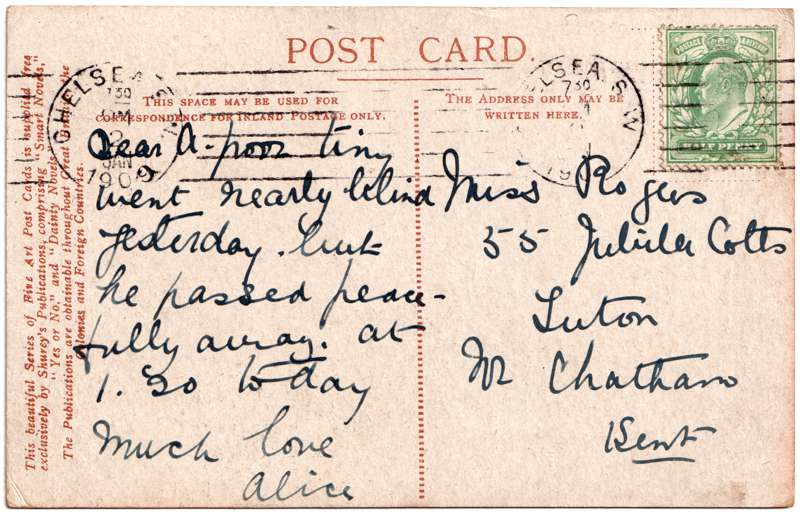 POST CARD.
THIS SPACE MAY BE USED FOR
CORRESPONDENCE FOR INLAND POSTAGE ONLY.
THE ADDRESS ONLY MAY BE
WRITTEN HERE.
Dear A - poor tiny
went nearly blind
yesterday. but
he passed peace-
fully away. at
1.30 to day
Much love
Alice
Miss Rogers
55 Jubilee Cotts
Luton
Nr Chatham
Kent
CHELSEA S.W
7 30
2
JAN
1909
CHELSEA. S.W
7 30
190
POSTAGE REVENUE
HALF PENNY
This beautiful Series of Fine Art Post Cards is supplied free
exclusively by Shurey's Publications, comprising "Smart Novels,"
"Yes or No," and "Dainty Novels"
The Publications are obtainable throughout Great
Colonies and Foreign Countries.